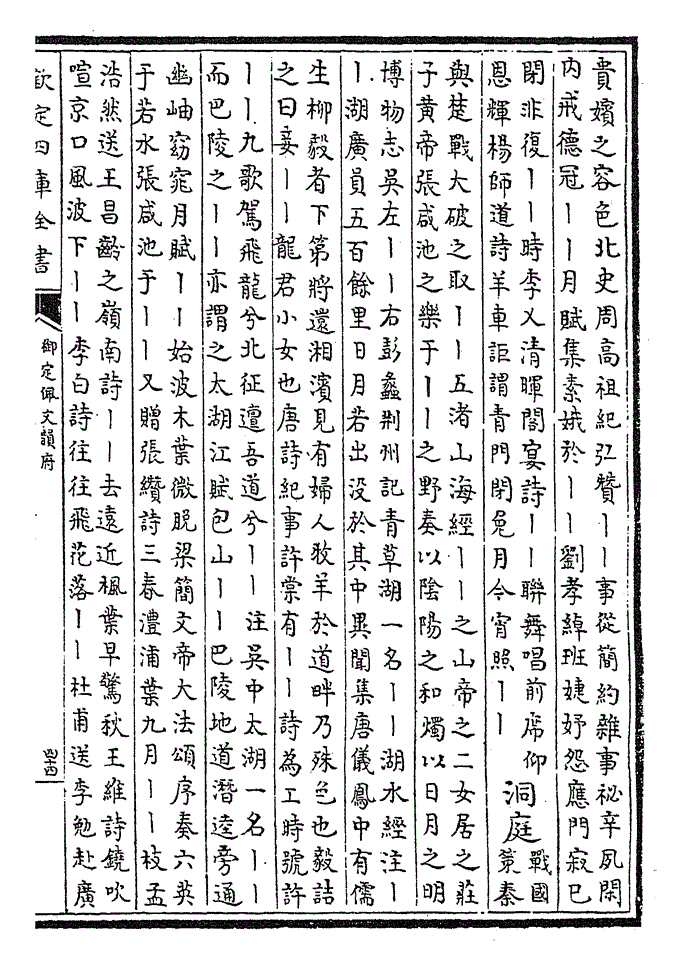 貴嬪之容色北史周高祖紀弘贊丨丨事從簡約雜事祕辛夙閑
内戒德冠丨丨月賦集素娥於丨丨劉孝綽班婕妤怨應門寂已
閉非復丨丨時李乂清暉閣宴詩丨丨聯舞唱前席仰
恩輝楊師道詩羊車詎謂青門閉兔月今宵照丨丨
洞庭
戰國
策秦
與楚戰大破之取丨丨五渚山海經丨丨之山帝之二女居之莊
子黄帝張咸池之樂于丨丨之野奏以陰陽之和燭以日月之明
博物志吳左丨丨右彭蠡荆州記青草湖一名丨丨湖水經注丨
丨湖廣員五百餘里日月若出没於其中異聞集唐儀鳳中有儒
生柳毅者下第將還湘濱見有婦人牧羊於道畔乃殊色也毅詰
之曰妾丨丨龍君小女也唐詩紀事許棠有丨丨詩為工時號許
丨丨九歌駕飛龍兮北征邅吾道兮丨丨注吳中太湖一名丨丨
而巴陵之丨丨亦謂之太湖江賦包山丨丨巴陵地道潛逵旁通
幽岫窈窕月賦丨丨始波木葉微脱梁簡文帝大法頌序奏六英
于若水張咸池于丨丨又贈張纘詩三春澧浦葉九月丨丨枝孟
浩然送王昌齡之嶺南詩丨丨去遠近楓葉早驚秋王維詩鐃吹
喧京口風波下丨丨李白詩往往飛花落丨丨杜甫送李勉赴廣
欽定四庫全書
御定佩文韻府